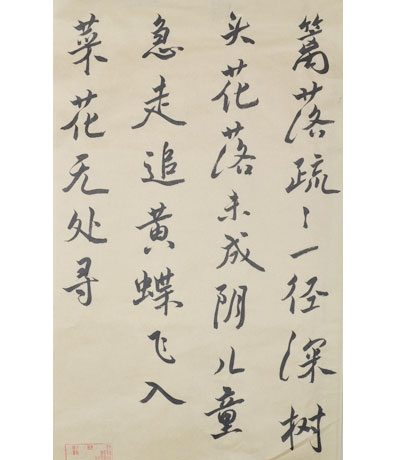 篱落疏〻一径深树
头花落未成阴儿童
急走追黄蝶飞入
菜花无处寻